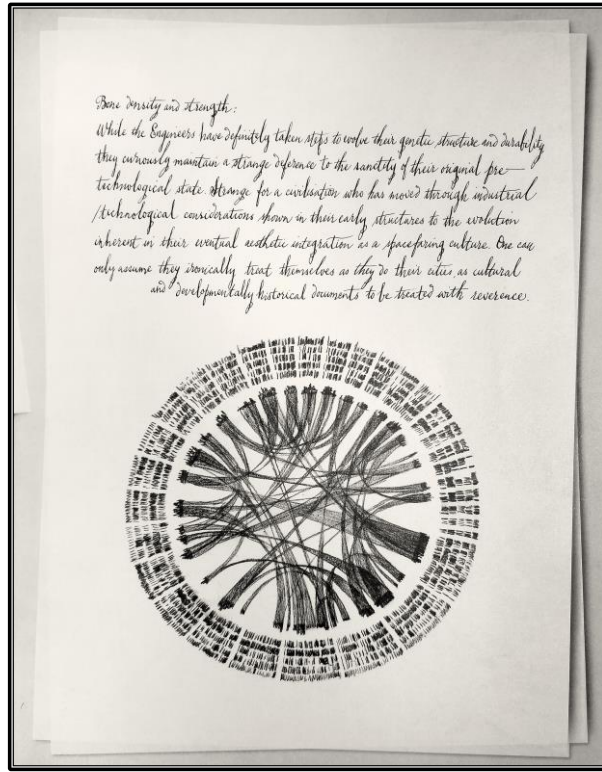 Bone density and strength:
While the Engineers have definitely taken steps to evolve their genetic structure and durability
they curiously maintain a strange deference to the sanctity of their original pre-
technological state. Strange for a civilisation who has moved through industrial
/technological considerations shown in their early structures to the evolution
inherent in their eventual aesthetic integration as a spacefaring culture. One can
only assume they ironically treat themselves as they do their cities, as cultural
and developmentally historical documents to be treated with reverence.